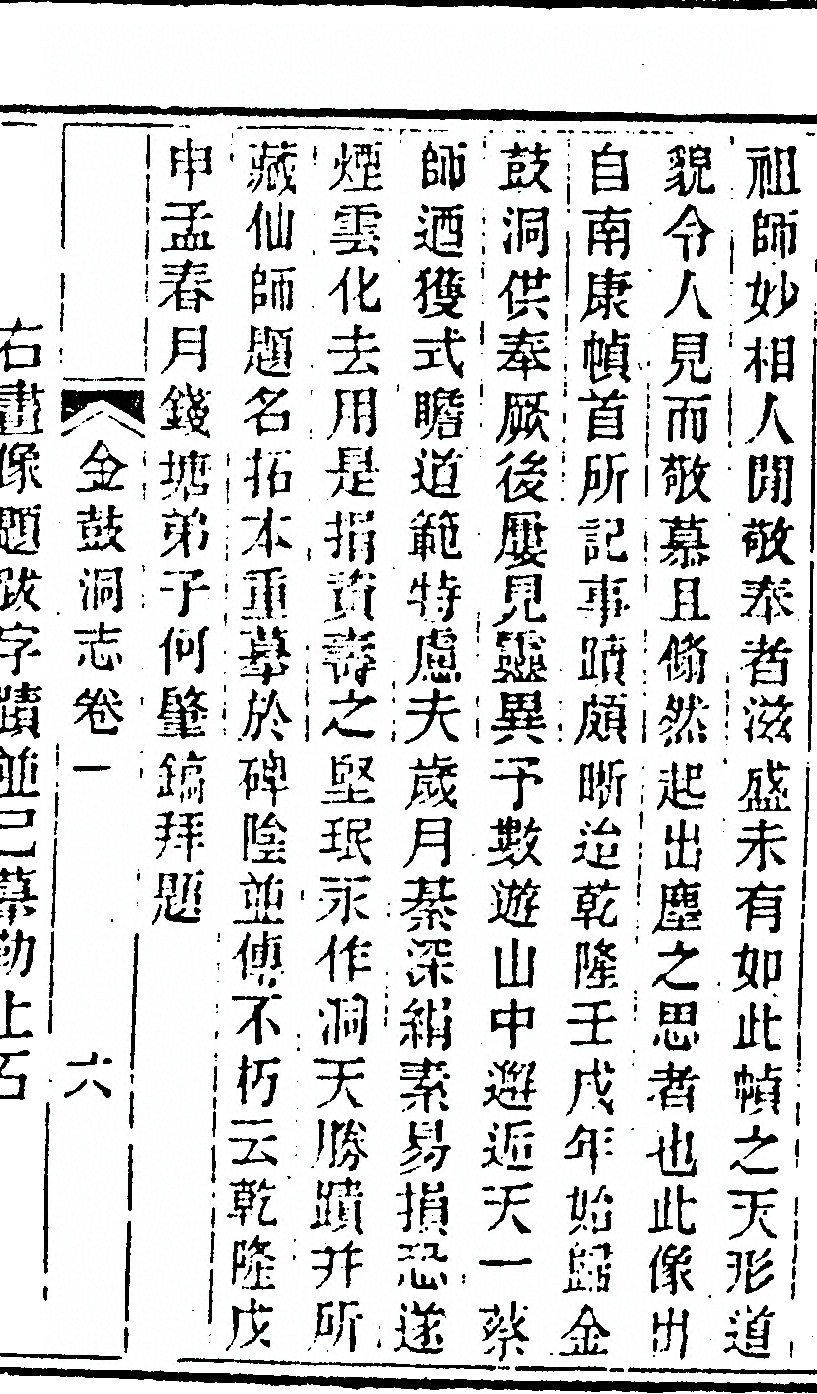 祖師妙相人間敬奉者滋盛未有如此幀之天形道
貌令人見而敬慕且翛然起出塵之思者也此像出
自南康幀首所記事蹟頗晰迨乾隆壬戌年始歸金
鼓洞供奉厥後屢見靈異予數遊山中邂逅天一蔡
師迺獲式瞻道範特慮夫歲月綦深絹素易損恐遂
煙雲化去用是捐資壽之堅珉永作洞天勝蹟并所
藏仙師題名拓本重摹於碑陰並傳不朽云乾隆戊
申孟春月錢塘弟子何肇鎬拜題
金鼓洞志卷一
六
右畫像題跋字蹟並已摹勒上石